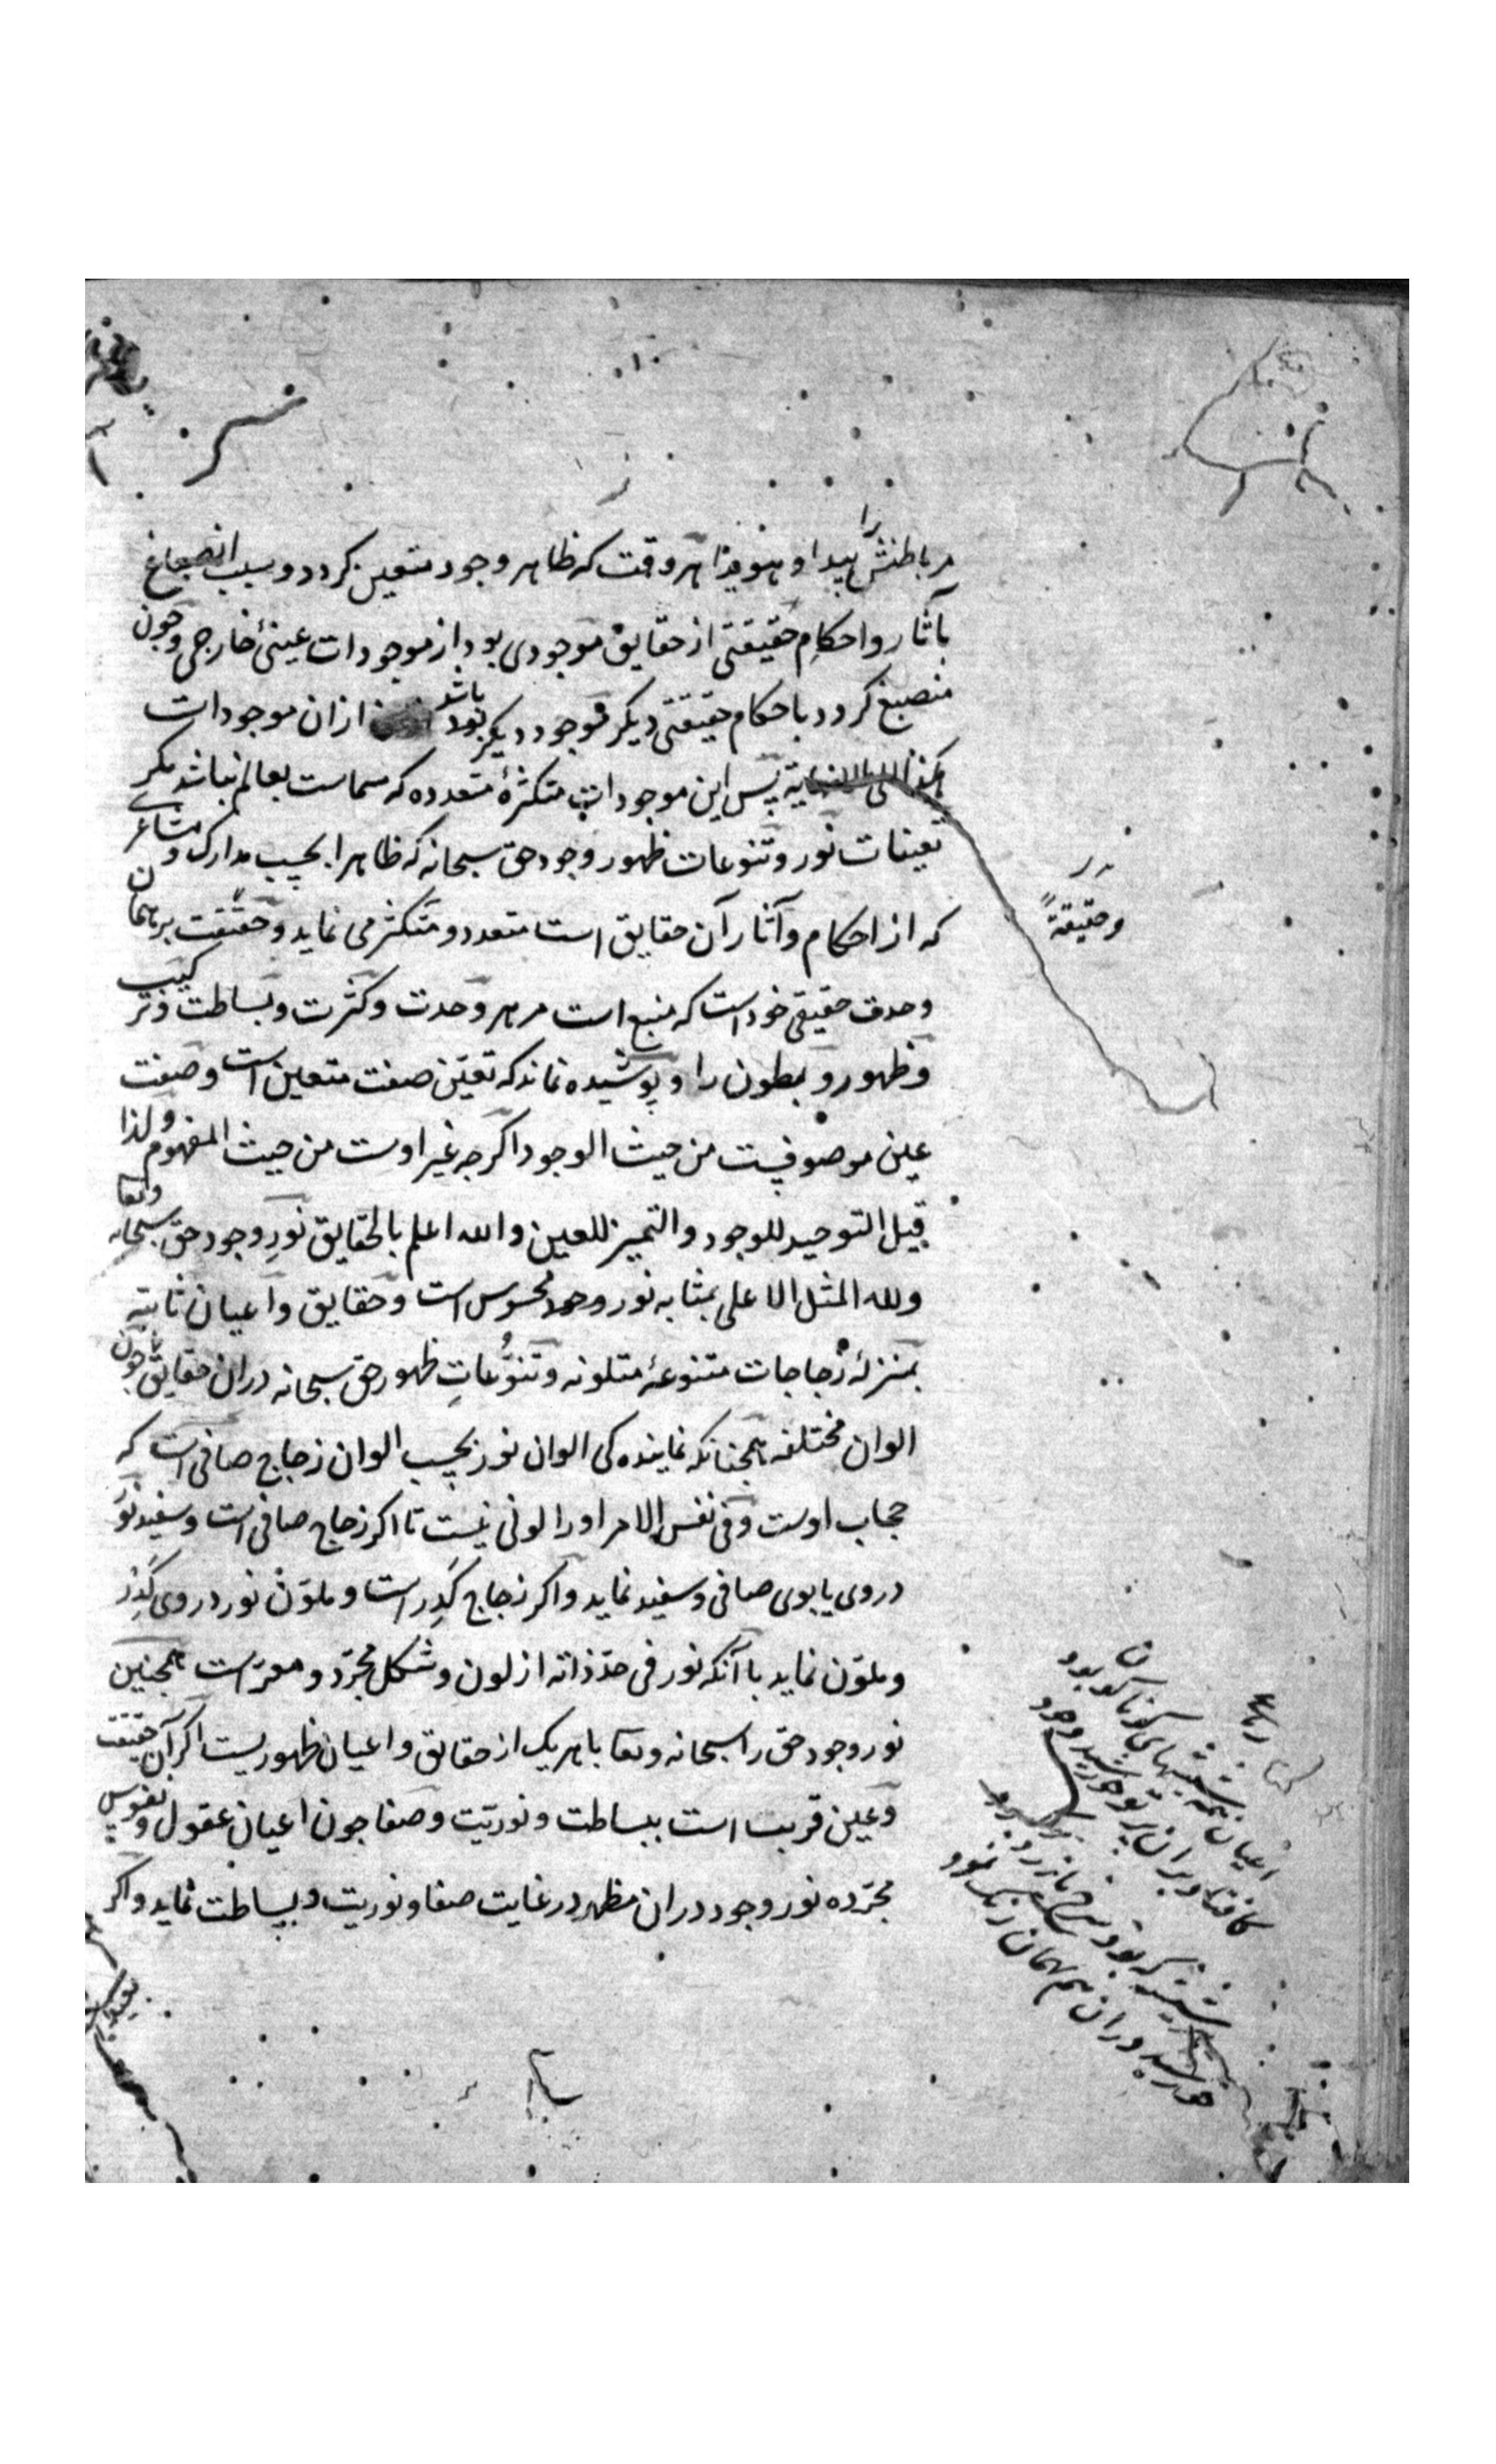 مر باطنش را پیدا و هویدا هر وقت که ظاهر وجود متعین کردد و بسبب انصباغ
بآثار و احکام حقیقتی از حقایق موجودی بود از موجودات عینیٔ خارجی و چون
منصبغ کردد باحکام حقیقتی دیکر موجود دیکر بود باشد ازان موجودات
هکذا الی لا نهایة پس این موجودات متکثرهٔ متعدده که مسماست بعالم نباشد مکر
تعینات نور و تنوعات ظهور وجود حق سبحانه که ظاهرا بحسب مدارک و مشاعر
که از احکام و آثار آن حقایق است متعدد و متکثر می نماید و حقیقت بر همان
وحدت حقیقی خود است که منبع است مر هر وحدت و کثرت و بساطت و ترکیب
و ظهور و بطون را و پوشیده نماند که تعین صفت متعین است و صفت
عین موصوفست من حیث الوجود اکرچه غیر اوست من حیث المفهوم و لذا
قیل التوحید للوجود والتمییز للعین والله اعلم بالحقایق نورِ وجود حق سبحانه وتعا
ولله المثل الاعلی بمثابه نور محسوس است و حقایق و اعیان ثابته
بمنزلهٔ زجاجات متنوعهٔ متلونه و تنوُّعاتِ ظهور حق سبحانه دران حقایق چون
الوان مختلفه همچنانکه نمایندکی الوان نور بحسب الوان زجاج صافی است که
حجاب اوست و فی نفس الامر او را لونی نیست تا اکر زجاج صافی است و سفید نور
در وی یا بوی صافی و سفید نماید و اکر زجاج کَدِر است و ملوّن نور در وی کَدِر
و ملوّن نماید با آنکه نور فی حدّ ذاته از لون و شکل مجرّد و معرّاست همچنین
نور وجود حق را سبحانه و تعا با هر یک از حقایق و اعیان ظهوریست اکر آن حقیقت
و عین قریب است ببساطت و نوریّت و صفا چون اعیان عقول و نفوس
مجرّده نور وجود دران مظهر در غایت صفا و نوریت و بساطت نماید و اکر
و حقیقةً
رباعیه
اعیان همه شیشهای کوناکون بود
کافتاد بران پرتو خورشید وجود
هر شیشه که بود سرخ یا زرد و کبود
خورشید دران هم بهمان رنک نمود